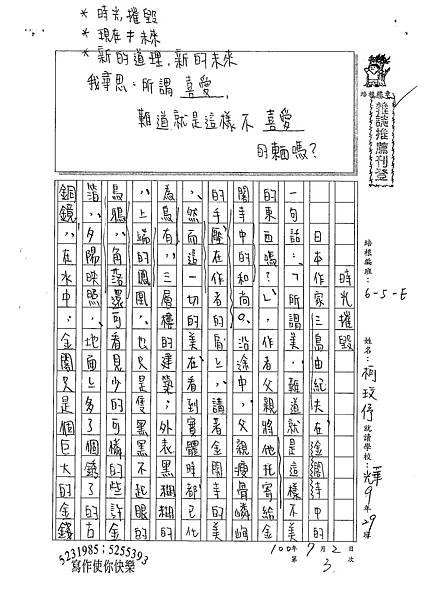 * 時光摧毀
* 現在 未來
* 新的道理,新的未來
我畢思:所謂 喜愛,
難道就是這樣不 喜愛
的東西嗎?
培根標章
難談推薦刊登
培根編班:6-5-E
姓名:柯玟伃
就讀學校:光華
9年29班
時光摧毀
日本作家三島由紀夫在金閣寺中的
一句話:「所謂美,難道就是這樣不美的
的東西嗎?」作者父親將他托寄給金
閣寺中的和尚。沿途中,父親瘦骨嶙峋
的手壓在作者的肩上,講著金閣寺的美
然而這一切的美,在看到實體時都已化
為烏有。三層樓的建築,外表黑糊糊的
上端的鳳凰也只是隻黑黑不起眼的
烏鴉,角落還可看見少的可憐的些許金
箔。夕陽映照,地面上多了個鏽了的古
銅鏡,在水中,金閣只是個巨大的金錢
5231985;5255393
寫作使你快樂
100年7月2日
第3次